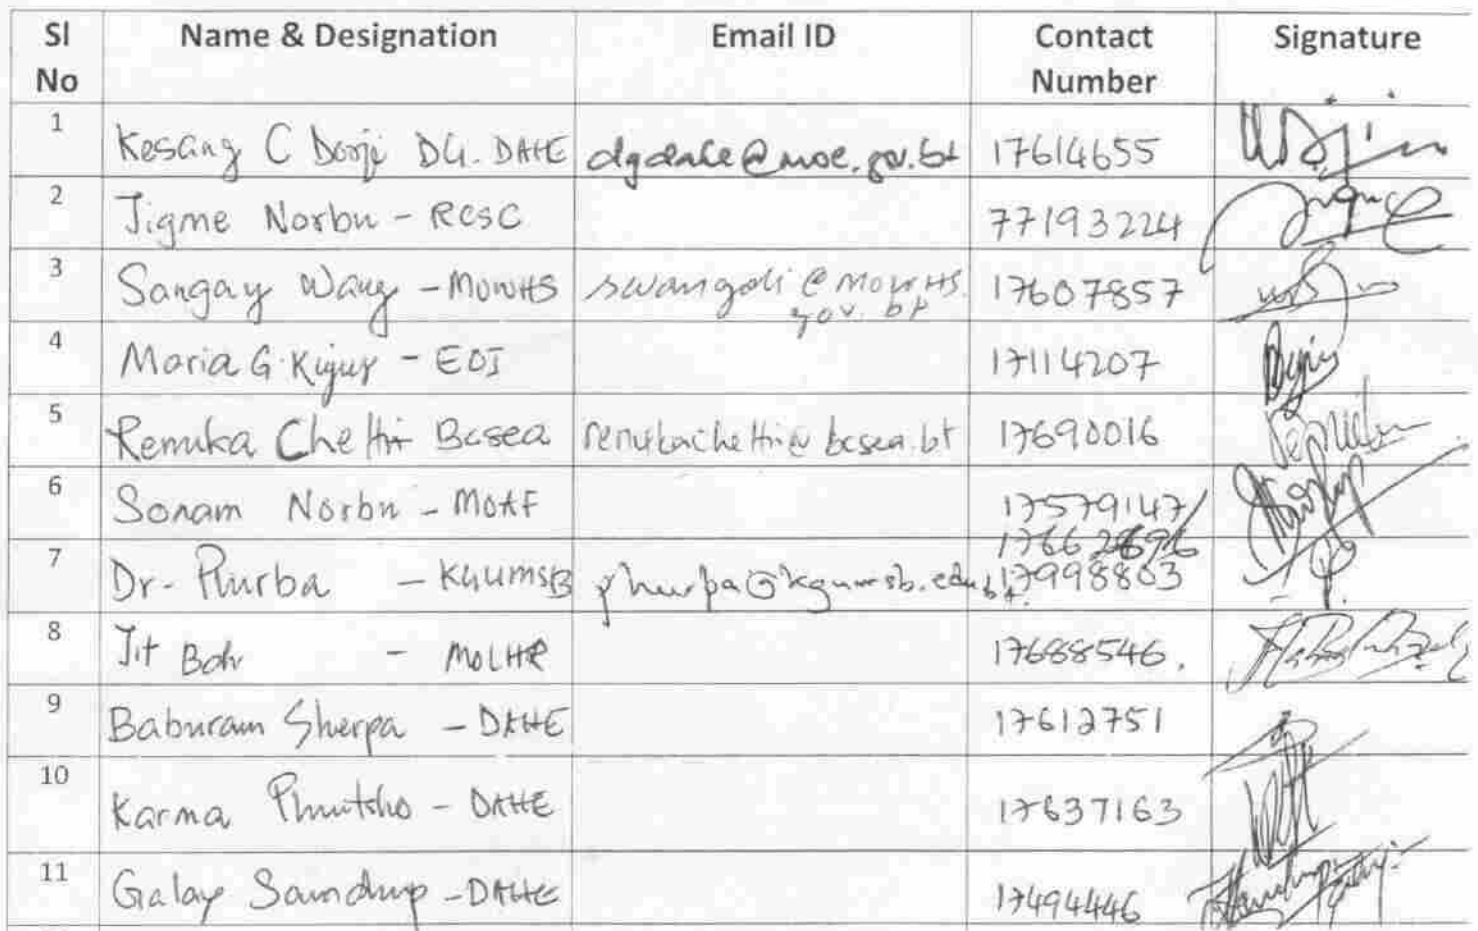 Sl No Name & Designation Email ID Contact Number Signature
1 Kesang C Dorji DG. DAHE dgdahe@moe.gov.bt 17614655
2 Jigme Norbu - RCSC 77193224
3 Sangay Wang - MOWHS @MOWHS. 17607857
gov.bt
4 Maria G. - EDI 17114207
5 Renuka Chettri Bcsea renukachettri@bcsea.bt 17690016
6 Sonam Norbu - MOAF 17579147/
7 Dr. Phurba - KGUMSB phurpa@kgumsb.edu.bt. 17998803
8 Jit Bdr - MOLHR 17688546.
9 Baburam Sherpa - DAHE 17612751
10 Karma Phuntsho - DAHE 17637163
11 Galay Samdrup - DAHE 17494446